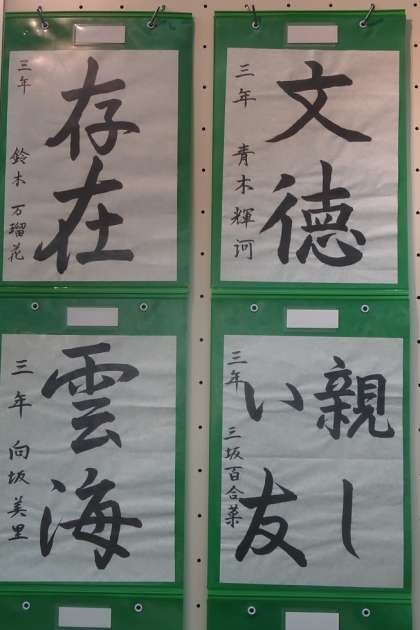 文徳
三年 青木輝河
存在
三年 鈴木万瑠花
親し
い友
三年 三坂百合菜
雲海
三年 向坂美里